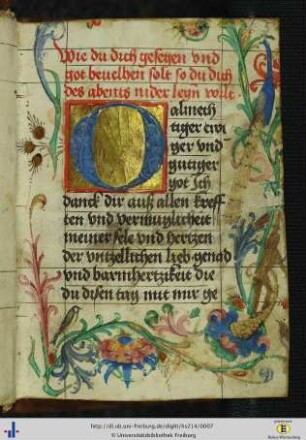 Wie du dich gesegen vnd
got beuelhen solt so du dich
des abents nider legn wilt
O almech
tiger ewi
ger vnd
gutiger
got Ich
danck dir auß allen kreff
ten vnd vermuglicheit
meiner sele vnd hertzen
der vntzellichen lieb genad
vnd barmhertzikeit die
du disen tag mit mir ge
http://dl.ub.uni-freiburg.de/diglit/hs214/0007
© Universitätsbibliothek Freiburg